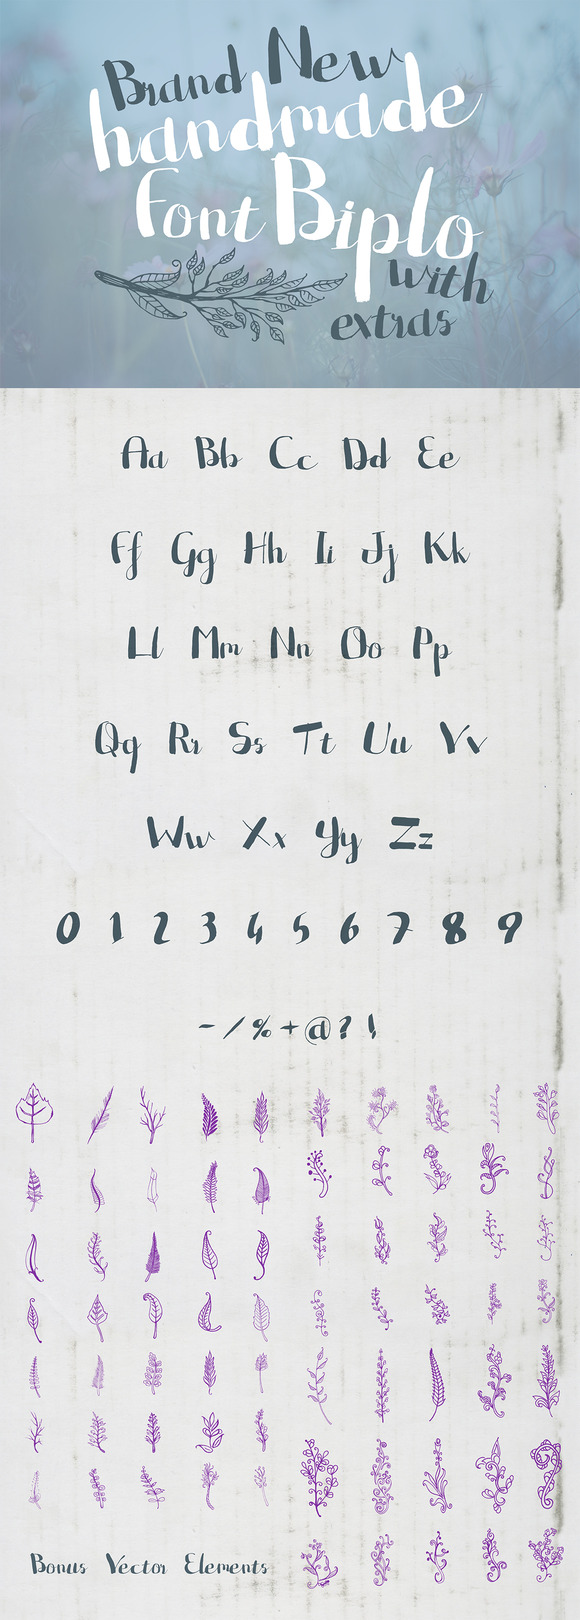 Brand New
handmade
Font Biplo
with
extras
Aa Bb Cc Dd Ee
Ff Gg Hh Ii Jj Kk
Ll Mm Nn Oo Pp
Qq Rr Ss Tt Uu Vv
Ww Xx Yy Zz
0 1 2 3 4 5 6 7 8 9
- / % + @ ? !
Bonus Vector Elements